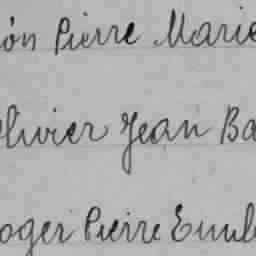 ón Pierre Marie
livier Jean Ba
oger Pierre Emile